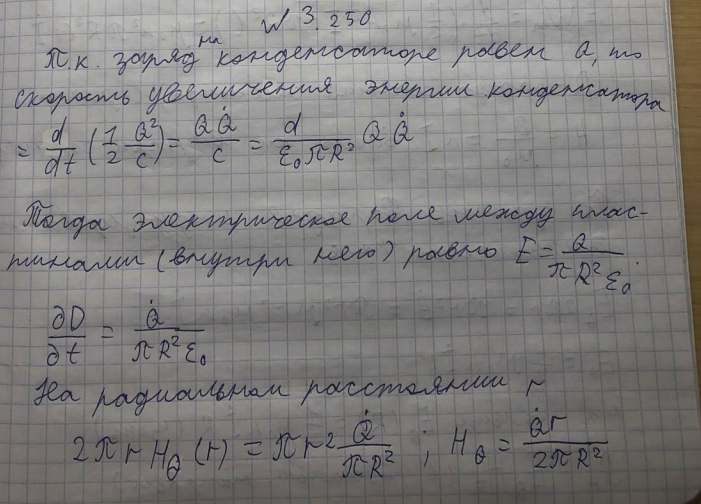 N 3.250
Т.к. заряд на конденсаторе равен Q, то
скорость увеличения энергии конденсатора
= d/dt (1/2 Q²/C) = QQ̇/C = d/(ε₀πR²) QQ̇
Тогда электрическое поле между плас-
тинами (внутри него) равно E = Q/(πR²ε₀).
∂D/∂t = Q̇/(πR²ε₀)
На радиальном расстоянии r
2πr H_θ(r) = πr² Q̇/(πR²) ; H_θ = Q̇r/(2πR²)